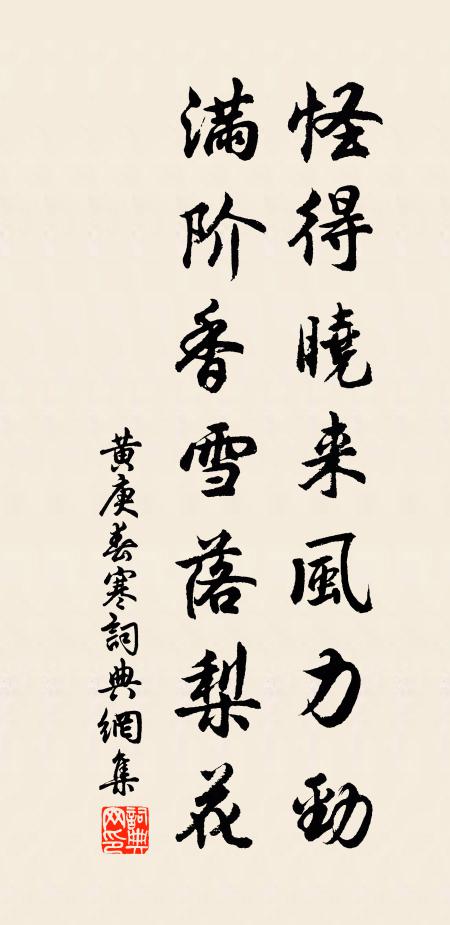 怪得曉来風力劲
满阶香雪落梨花
黄庚春寒詞典網集
詞典網印